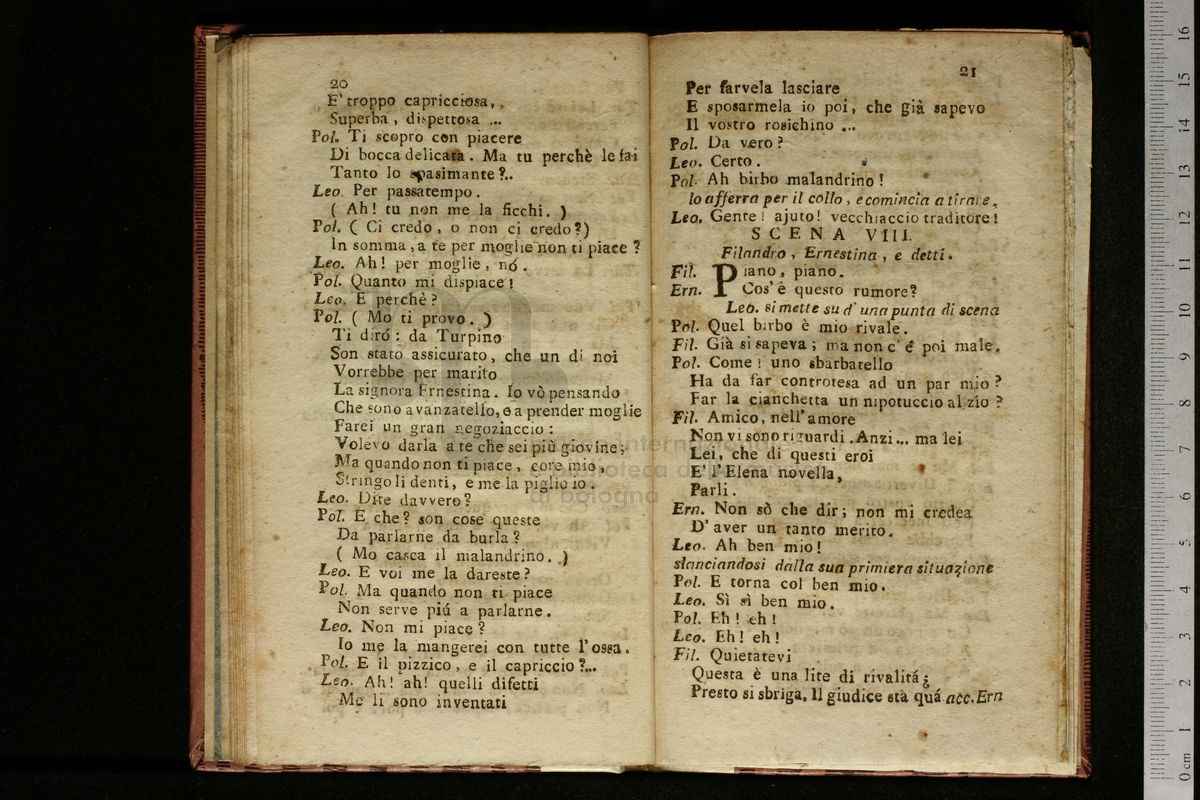 20
E' troppo capricciosa,
Superba, dispettosa ...
Pol. Ti scopro con piacere
Di bocca delicata. Ma tu perchè le fai
Tanto lo spasimante?..
Leo. Per passatempo.
( Ah! tu non me la ficchi. )
Pol. ( Ci credo, o non ci credo?)
In somma, a te per moglie non ti piace?
Leo. Ah! per moglie, nó.
Pol. Quanto mi dispiace!
Leo. E perchè?
Pol. ( Mo ti provo. )
Ti diró: da Turpino
Son stato assicurato, che un di noi
Vorrebbe per marito
La signora Ernestina. Io vò pensando
Che sono avanzatello, e a prender moglie
Farei un gran negoziaccio:
Volevo darla a te che sei più giovine;
Ma quando non ti piace, core mio,
Stringo li denti, e me la piglio io.
Leo. Dite davvero?
Pol. E che? son cose queste
Da parlarne da burla?
( Mo casca il malandrino. )
Leo. E voi me la dareste?
Pol. Ma quando non ti piace
Non serve piú a parlarne.
Leo. Non mi piace?
Io me la mangerei con tutte l'ossa.
Pol. E il pizzico, e il capriccio?...
Leo. Ah! ah! quelli difetti
Me li sono inventati
21
Per farvela lasciare
E sposarmela io poi, che già sapevo
Il vostro rosichino ...
Pol. Da vero?
Leo. Certo.
Pol. Ah birbo malandrino!
lo afferra per il collo, e comincia a tirare.
Leo. Gente! ajuto! vecchiaccio traditore!
SCENA VIII.
Filandro, Ernestina, e detti.
Fil. Piano, piano.
Ern. Cos'è questo rumore?
Leo. si mette su d'una punta di scena
Pol. Quel birbo è mio rivale.
Fil. Già si sapeva; ma non c'è poi male.
Pol. Come! uno sbarbatello
Ha da far controtesa ad un par mio?
Far la cianchetta un nipotuccio al zio?
Fil. Amico, nell'amore
Non vi sono riguardi. Anzi... ma lei
Lei, che di questi eroi
E' l'Elena novella,
Parli.
Ern. Non sò che dir; non mi credea
D'aver un tanto merito.
Leo. Ah ben mio!
slanciandosi dalla sua primiera situazione
Pol. E torna col ben mio.
Leo. Sì sì ben mio.
Pol. Eh! eh!
Leo. Eh! eh!
Fil. Quietatevi
Questa è una lite di rivalitá;
Presto si sbriga. Il giudice sta quá acc. Ern